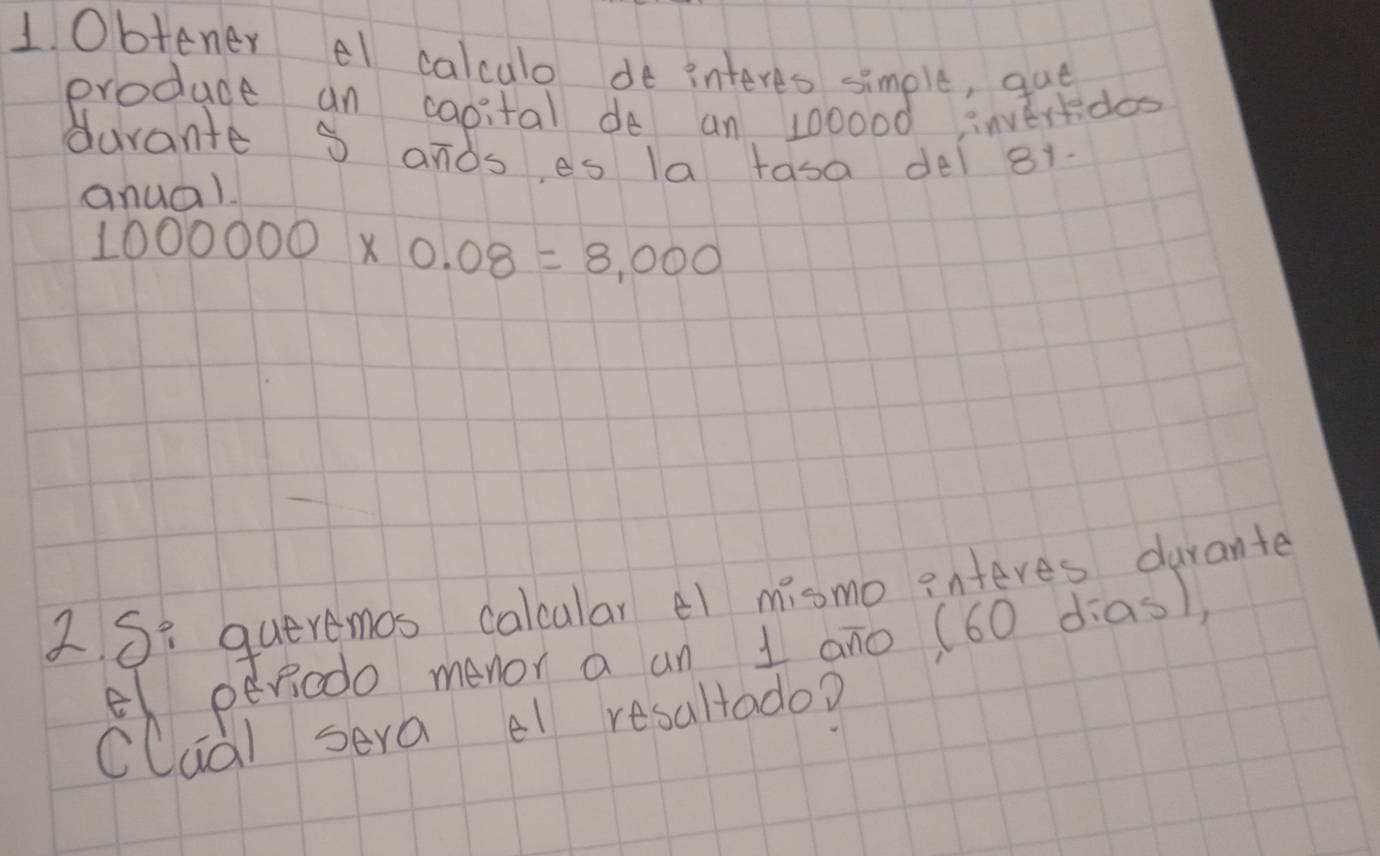 1. Obtener el calculo de interes simple, que
produce un capital de un 100000 invertidos
durante 5 años, es la tasa del 8%.
anual.
1000000 x 0.08 = 8,000
2. Si queremos calcular el mismo interes durante
el periodo menor a un 1 año (60 dias),
¿Cuál sera el resultado?